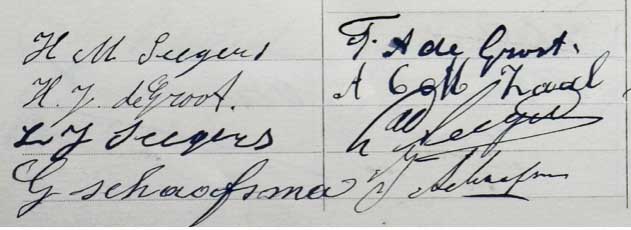 H M Seegers
H. J. de Groot.
L J Seegers
G Schaafsma
F. A de Groot.
A C M Zaal
Seegers
F Schaafsma